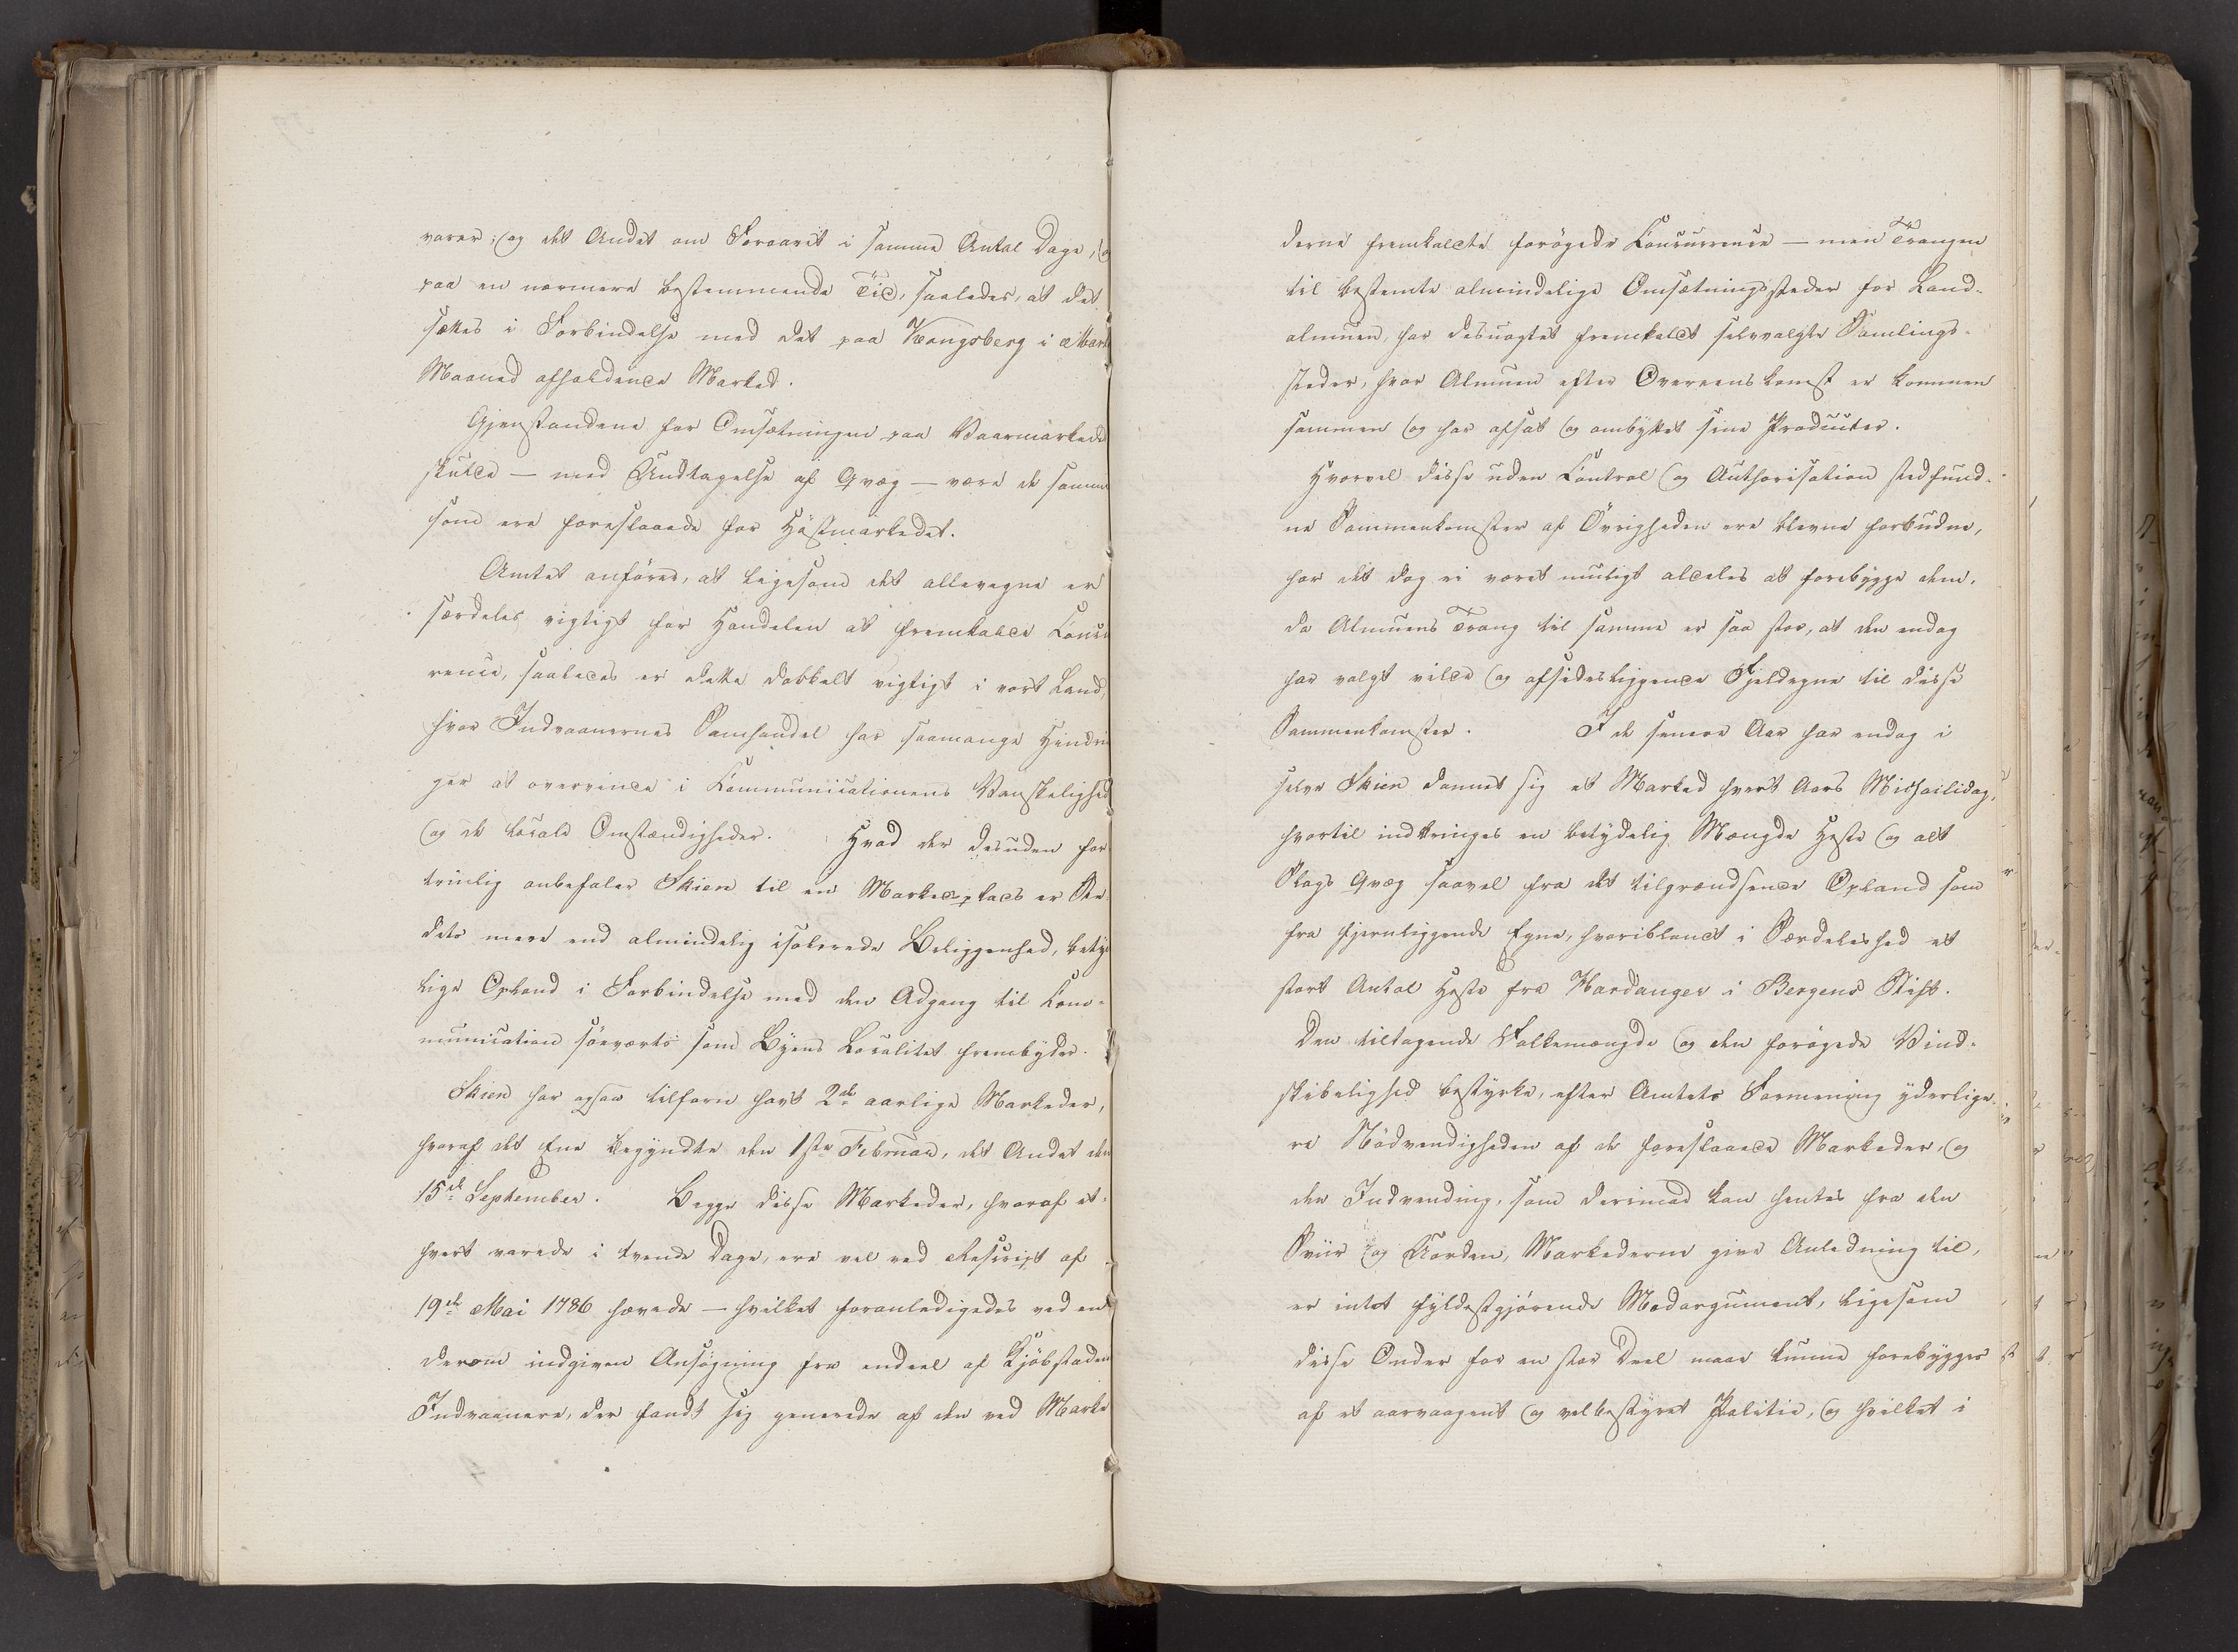 varer; og det Andet om Foraaret i samme Antal Dage, og
paa en nærmere bestemmende Tid, saaledes, at det
sættes i Forbindelse med det paa Kongsberg i Marts
Maaned afholdende Marked.
Gjenstandene for Omsætningen paa Vaarmarkedet
skulde — med Undtagelse af Qvæg — være de samme
som ere foreslaaede for Höstmarkedet.
Amtet anfører, at ligesom det allevegne er
særdeles vigtigt for Handelen at fremkalde Concur
rence, saaledes er dette dobbelt vigtigt i vort Land,
hvor Indvaanernes Samhandel har saamange Hindrin
ger at overvinde i Communicationens Vanskelighed
og de locale Omstændigheder. Hvad der desuden for
trinlig anbefaler Skien til en Markedsplads er Ste
dets mere end almindelig isolerede Beliggenhed, bety
lige Opland i Forbindelse med den Adgang til Com-
munication söeværts som Byens Localitet frembyder.
Skien har ogsaa tilforn havt 2de aarlige Markeder,
hvoraf det Ene begyndte den 1ste Februar, det Andet den
15de September. Begge disse Markeder, hvoraf et-
hvert varede i tvende Dage, ere vel ved Rescript af
19de Mai 1786 hævede — hvilket foranledigedes ved en
derom indgiven Ansøgning fra endeel af Kjöbstadens
Indvaanere, der fandt sig generede af den ved Marke
derne fremkaldte forögede Concurrence — men Trangen
til bestemte almindelige Omsætningssteder for Land-
almuen, har desuagtet fremkaldt selvvalgte Samlings-
steder, hvor Almuen efter Overeenskomst er kommen
sammen og har afsat og ombyttet sine Producter.
Hvorvel disse uden Control og Authorisation stedfund-
ne Sammenkomster af Övrigheden ere blevne forbudne,
har det dog ei været muligt aldeles at forebygge dem,
da Almuens Trang til samme er saa stor, at den endog
har valgt vilde og afsidesliggende Fjeldegne til disse
Sammenkomster. I de senere Aar har endog i
selve Skien dannet sig et Marked hvert Aars Michailidag,
hvortil indbringes en betydelig Mængde Heste og alt
Slags Qvæg saavel fra det tilgrændsende Opland som
fra fjernliggende Egne, hvoriblandt i Særdeleshed et
stort Antal Heste fra Hardanger i Bergens Stift.
Den tiltagende Folkemængde og den forögede Vind-
skibelighed bestyrke, efter Amtets Formening yderlige-
re Nödvendigheden af de foreslaaede Markeder, og
den Indvending, som derimod kan hentes fra den
Sviir og Uorden, Markederne give Anledning til,
er intet fyldestgjörende Modargument, ligesom
disse Onder for en stor Deel maae kunne forebygges
af et aarvaagent og velbestyret Politie, og hvilket i